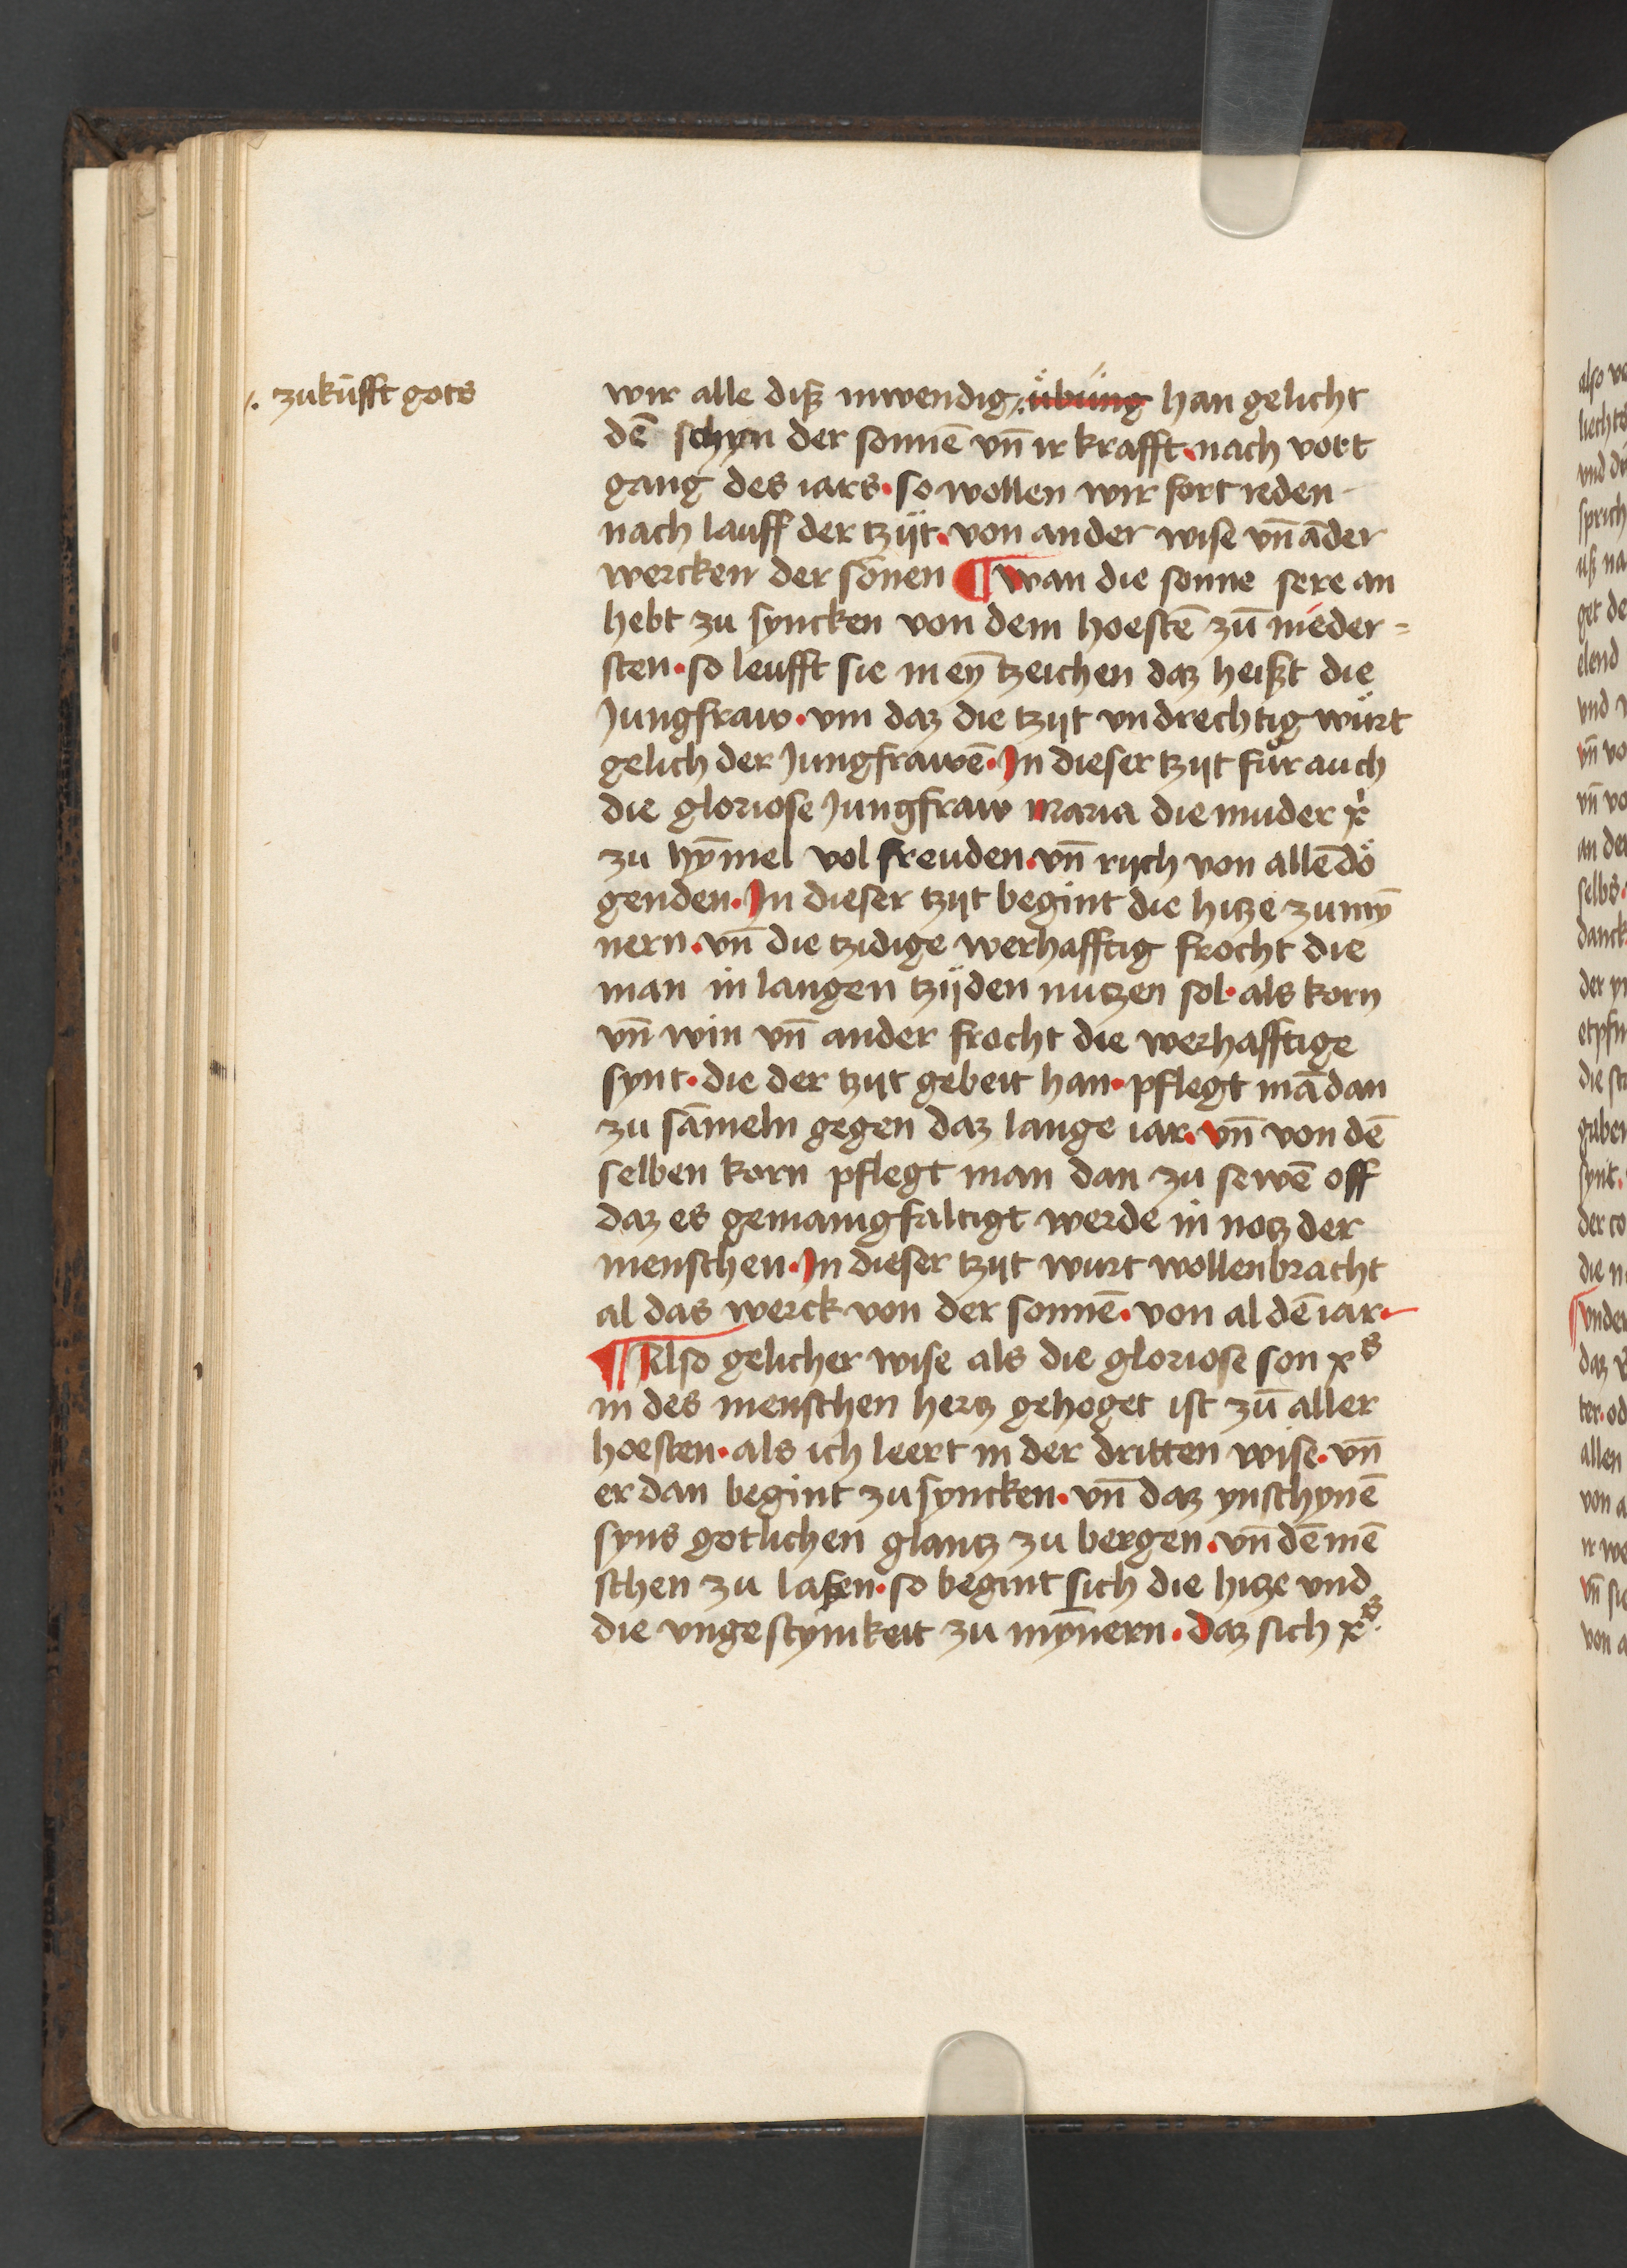 /. zukūfft gots
wir alle diß inwendig /. übung han gelicht
dē schyn der sonnē vn̄ ir krafft · nach vort
gang des iars · so wollen wir fort reden
nach lauff der tzijt · von ander wise vn̄ āder
wercken der sōnen ¶ wan die sonne sere an
hebt zu syncken von dem hoestē zū nieder =
sten · so leufft sie in eȳ tzeichen daz heißt die
Jungfraw · vm daz die tzijt vndrechtig würt
gelich der Jungfrawē · Jn dieser tzijt fůr auch
die gloriose Jungfraw maria die muder xͥ
zu hȳmel vol freuden · vn̄ rijch von allē dö
genden · Jn dieser tzijt begint die hitze zu mȳ
nern · vn̄ die tzidige werhafftig frocht die
man in langen tzijden nutzen sol · als korn
vn̄ win vn̄ ander frocht die werhafftige
synt · die der tzijt gebeit han · pflegt mā dan
zu sāmeln gegen daz lange iar · vn̄ von dē
selben korn pflegt man dan zu sewē off
daz es gemanigfaltigt werde in notz der
menschen · Jn dieser tzijt wurt wollenbracht
al das werck von der sonnē · von al dē iar ·
¶ Also gelicher wise als die gloriose son xˢ
in des menschen hertz gehoget ist zū aller
hoesten · als ich leert in der dritten wise · vn̄
er dan begint zu syncken · vn̄ daz ynschynē
syns gotlichen glantz zu bergen · vn̄ dē mē
schen zu laßen · so begint sich die hitze vnd
die vngestymkeit zu mȳnern · daz sich xˢ·